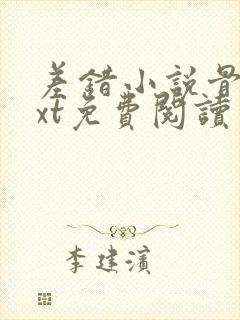 差錯小説最
xt免費閱讀
李建濱